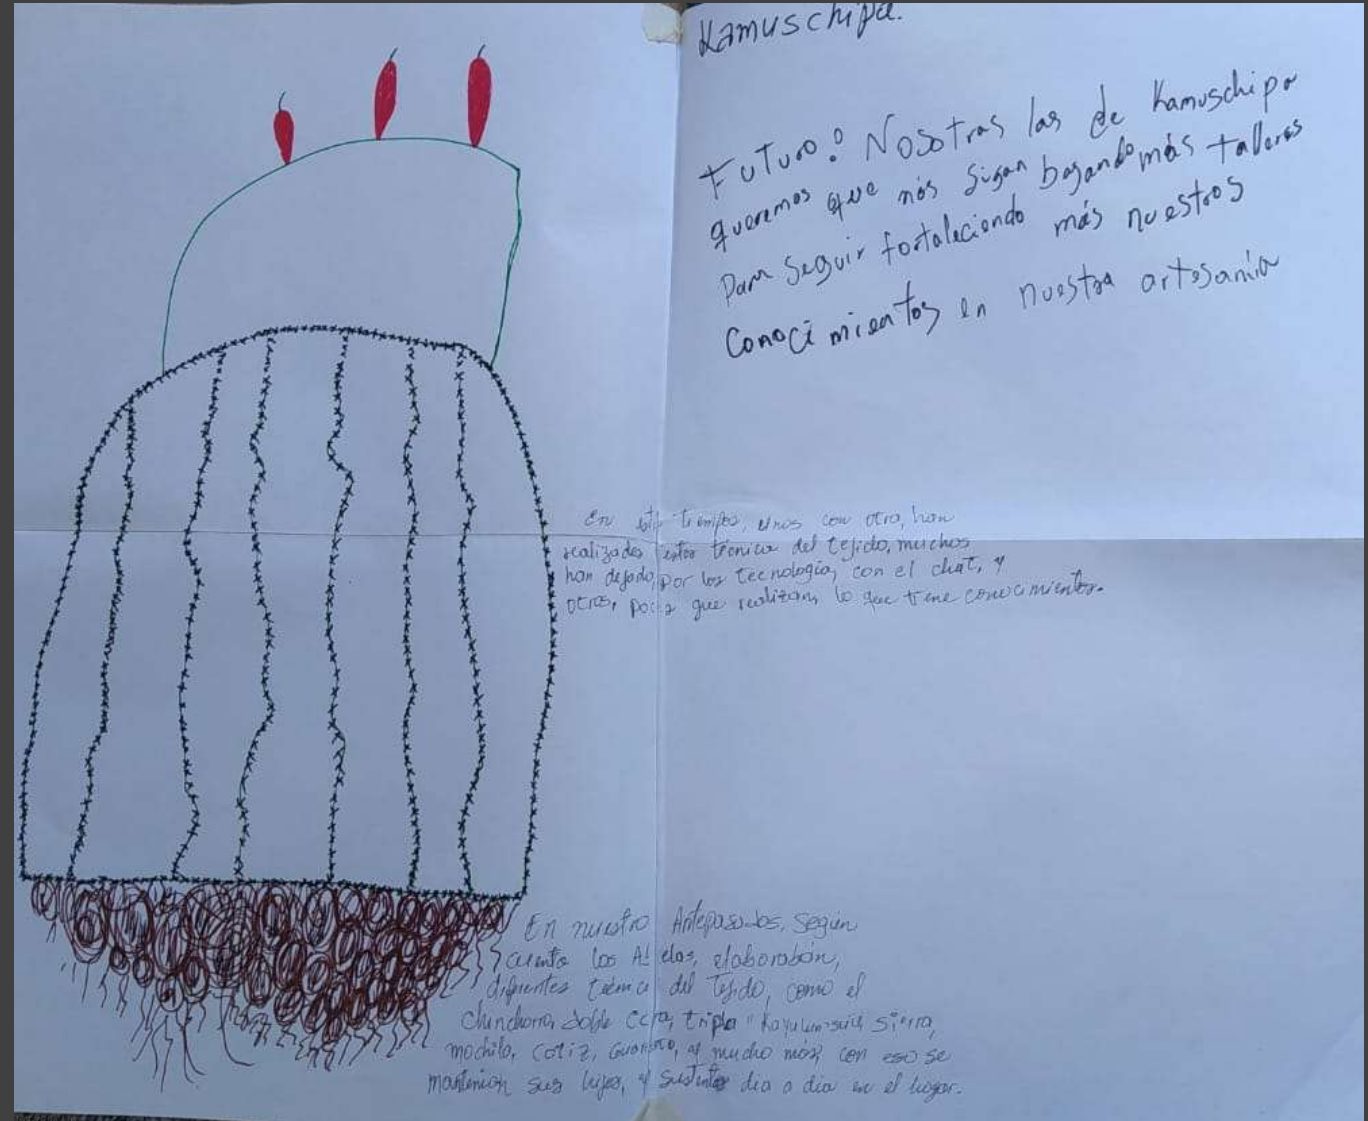 Kamuschipa.
Futuro: Nosotras las de Kamuschipa
queremos que nós sigan bagando más talleres
Para Seguir fortaleciendo más nuestros
Conocimientos en nuestra artesanía
En este tiempos, unos con otro, han
realizados estos técnica del tejido, muchos
han dejado por los tecnología, con el chat, y
otros, pocos que realizan, lo que tiene conocimientos.
En nuestro Antepasados, Según
cuento los elaborabón,
diferentes técnica del tejido, como el
chinchorro, doble cara, tripla "Kayulun-suis, Sierra,
mochila, cotiz, y mucho más, con eso se
mantenion sus hijos, y sustentos dia a dia en el hogar.